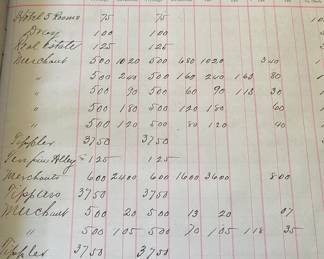 Hotel 5 Rooms 75 75
Dray 100 100
Real Estate 125 125
Merchant 500 1020 500 680 1020 340
" 500 240 500 160 240 80
" 500 90 500 60 90 30
" 500 180 500 120 180 60
" 500 120 500 80 120 40
Tippler 3750 3750
Tenpin Alley 125 125
Merchants 600 2400 600 1600 3600 800
Tipplers 3750 3750
Merchant 500 20 500 13 20 07
" 500 105 500 70 105 118 35
Tippler 3750 3750